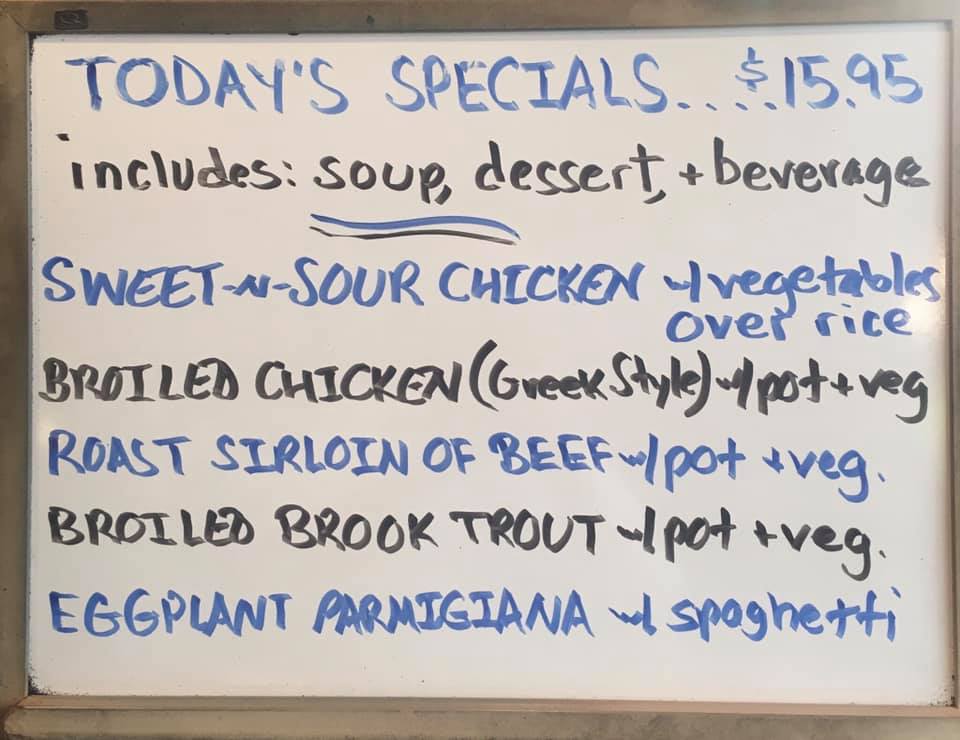 TODAY'S SPECIALS....$15.95
includes: soup, dessert, + beverage
SWEET-N-SOUR CHICKEN w/ vegetables
over rice
BROILED CHICKEN (Greek Style) w/ pot + veg
ROAST SIRLOIN OF BEEF w/ pot + veg.
BROILED BROOK TROUT w/ pot + veg.
EGGPLANT PARMIGIANA w/ spaghetti